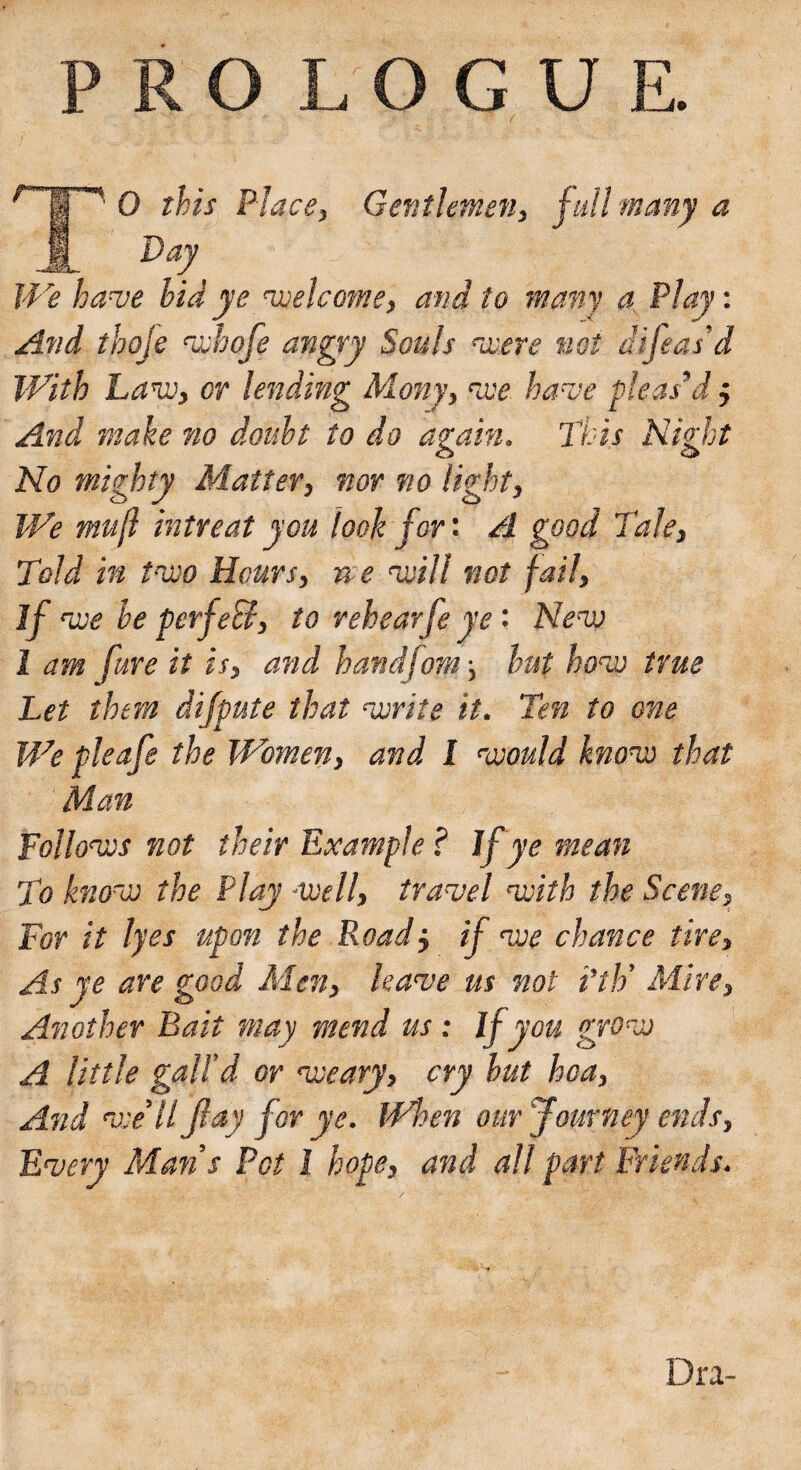 PROLOGUE.
TO this Place, Gentlemen, full many a
Day
We have bid ye welcome, and to many a Play:
And thoſe whoſe angry Souls were not diſeas'd
With Law, or lending Mony, we have pleas'd;
And make no doubt to do again. This Night
No mighty Matter, nor no light,
We muſt intreat you look for: A good Tale,
Told in two Hours, we will not fail,
If we be perfect, to rehearſe ye: New
I am ſure it is, and handſom; but how true
Let them diſpute that write it. Ten to one
We pleaſe the Women, and I would know that
Man
Follows not their Example? If ye mean
To know the Play well, travel with the Scene,
For it lyes upon the Road; if we chance tire,
As ye are good Men, leave us not i'th' Mire,
Another Bait may mend us: If you grow
A little gall'd or weary, cry but hoa,
And we'll ſtay for ye. When our Journey ends,
Every Man's Pot I hope, and all part Friends.
Dra-